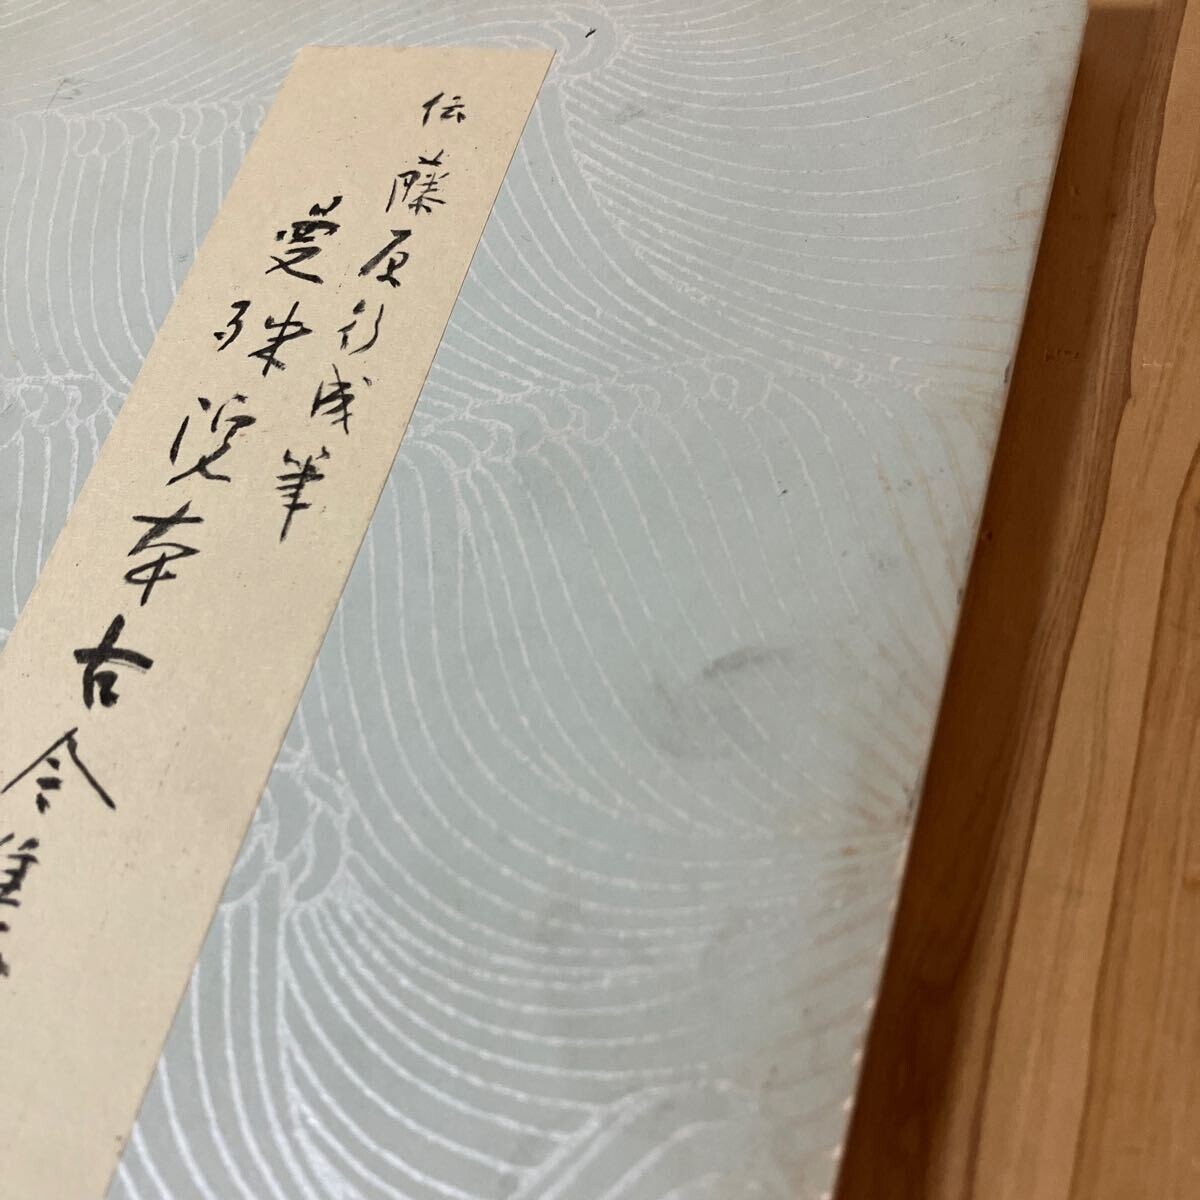 伝藤原行成筆
曼殊院本古今集